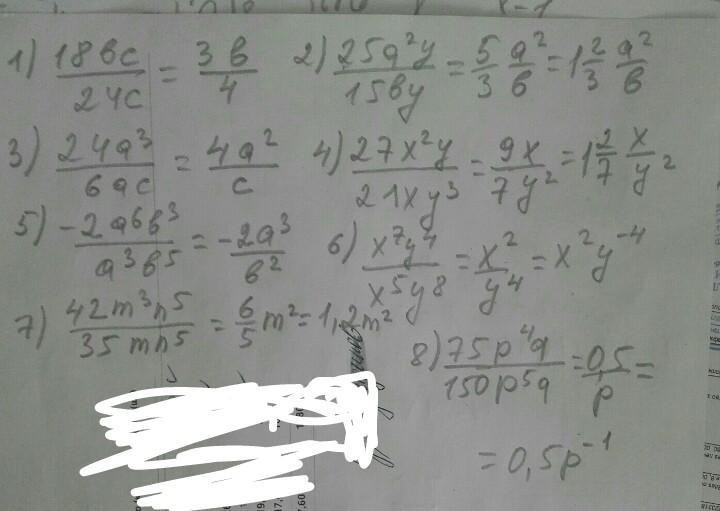 1) 18bc/24c = 3b/4
2) 25a²y/15by = 5/3 a²/b = 1 2/3 a²/b
3) 24a³/6ac = 4a²/c
4) 27x²y/21xy³ = 9x/7y² = 1 2/7 x/y²
5) -2a⁶b³/a³b⁵ = -2a³/b²
6) x⁷y⁴/x⁵y⁸ = x²/y⁴ = x²y⁻⁴
7) 42m³n⁵/35mn⁵ = 6/5 m² = 1,2m²
8) 75p⁴q/150p⁵q = 0,5/p =
= 0,5p⁻¹